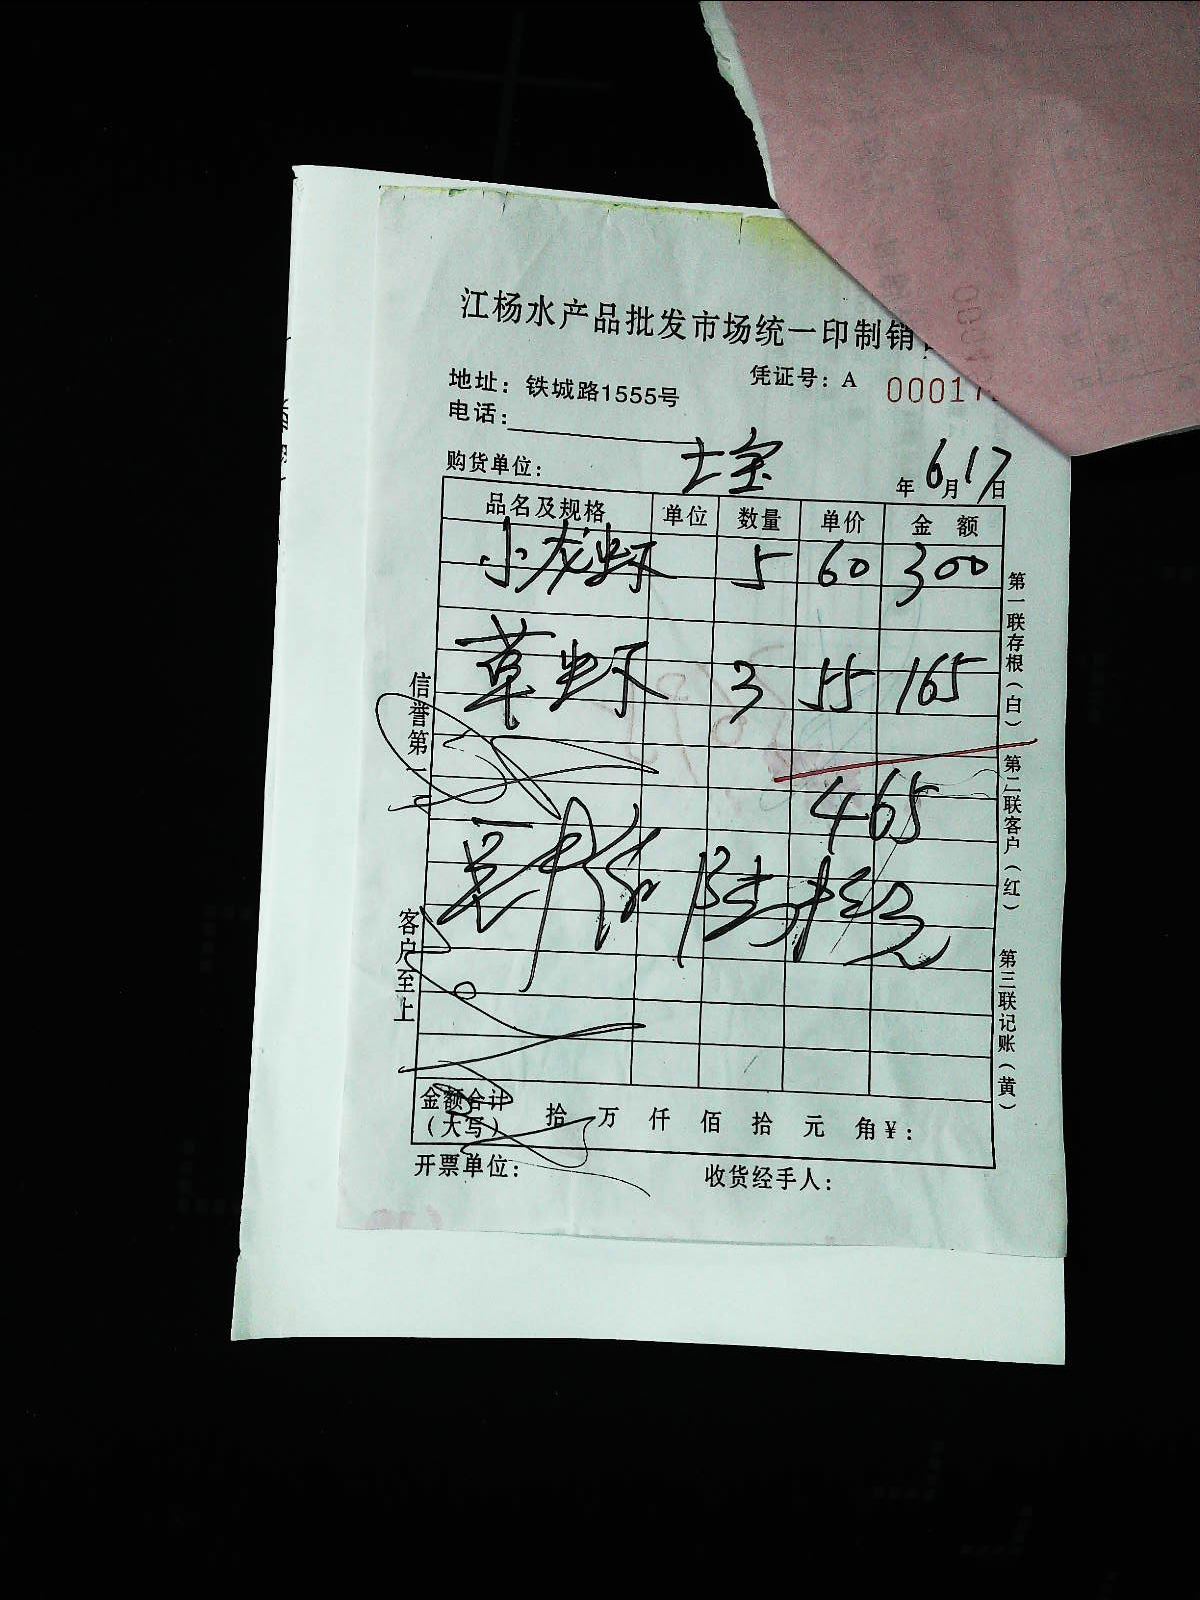 江杨水产品批发市场统一印制销
地址：铁城路1555号 凭证号：A 00017
电话：
购货单位： 士宝 年6月17日
品名及规格 单位 数量 单价 金额
小龙虾 5 60 300
草虾 3 55 165
465
肆佰陆拾伍元
金额合计（大写） 拾 万 仟 佰 拾 元 角 ¥：
开票单位： 收货经手人：
信誉第一
客户至上
第一联存根（白）
第二联客户（红）
第三联记账（黄）